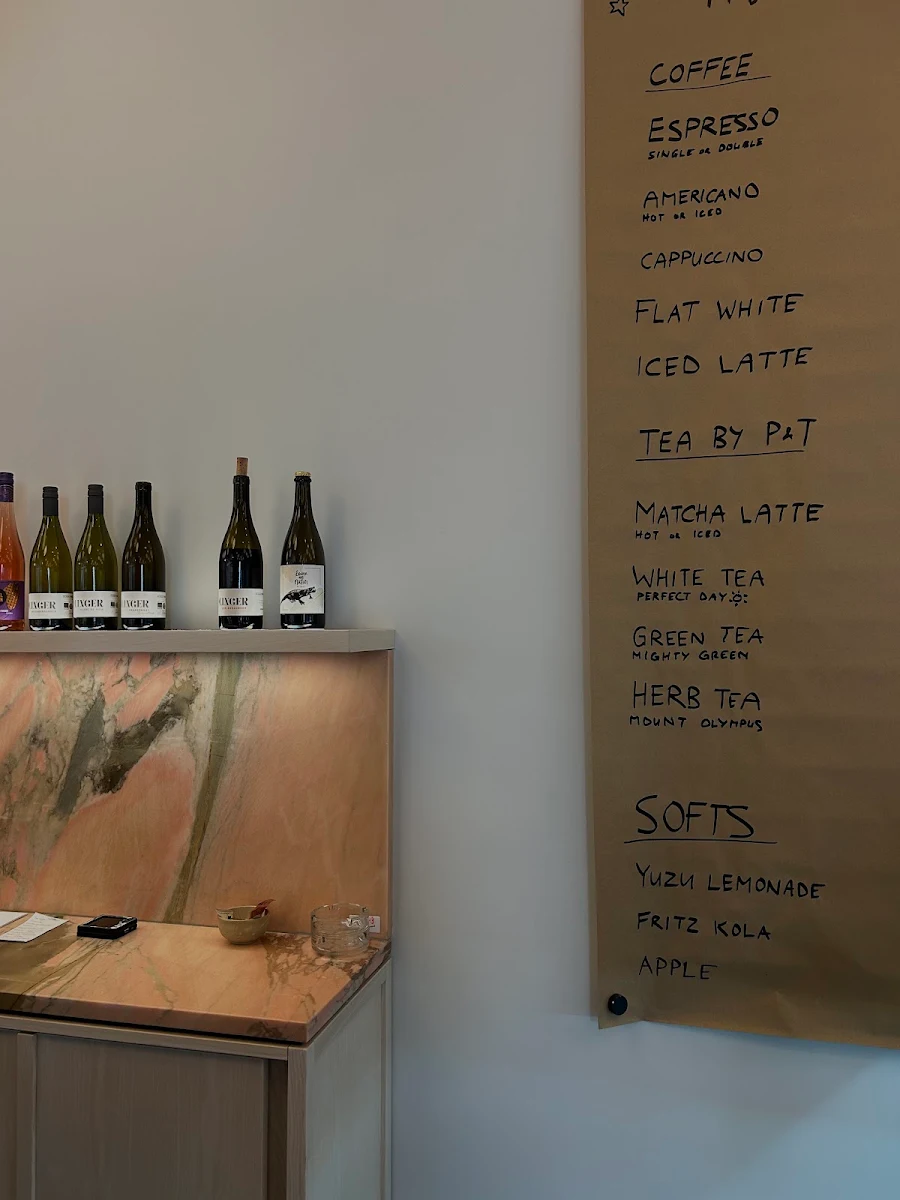 COFFEE
ESPRESSO
SINGLE OR DOUBLE
AMERICANO
HOT OR ICED
CAPPUCCINO
FLAT WHITE
ICED LATTE
TEA BY P&T
MATCHA LATTE
HOT OR ICED
WHITE TEA
PERFECT DAY
GREEN TEA
MIGHTY GREEN
HERB TEA
MOUNT OLYMPUS
SOFTS
YUZU LEMONADE
FRITZ KOLA
APPLE